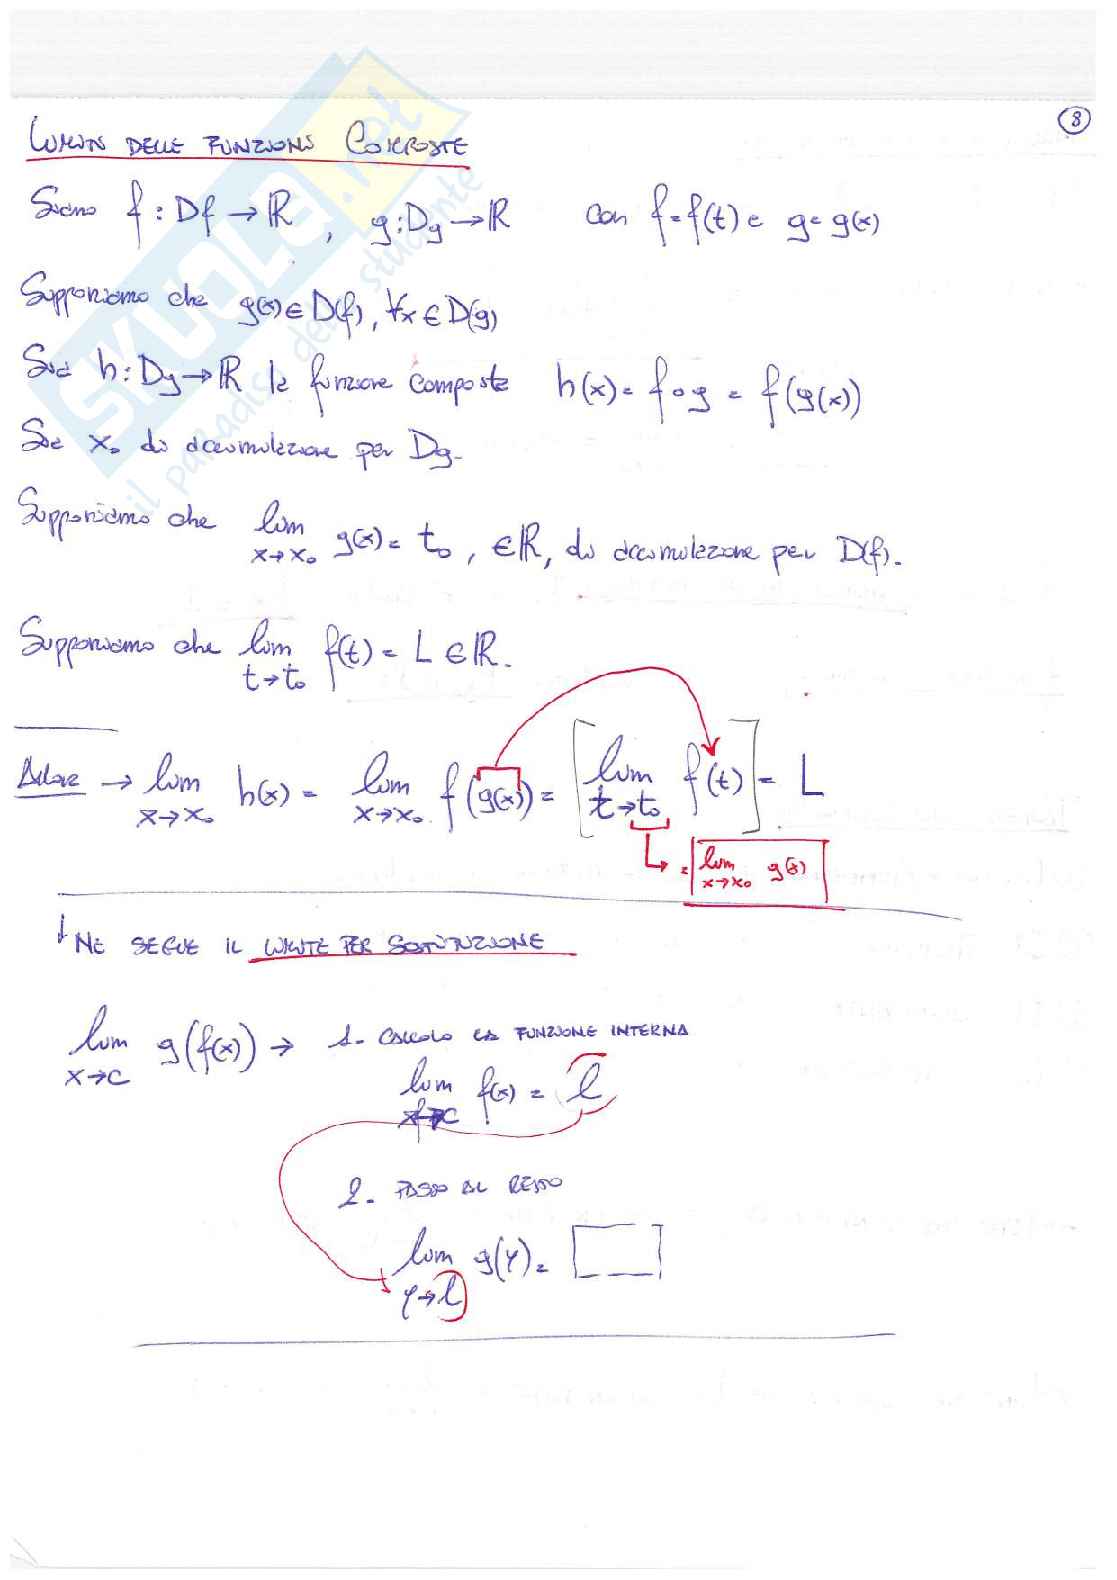 8
LIMITI DELLE FUNZIONI COMPOSTE
Siano f : Df → ℝ , g : Dg → ℝ con f = f(t) e g = g(x)
Supponiamo che g(x) ∈ D(f), ∀x ∈ D(g)
Sia h : Dg → ℝ la funzione composta h(x) = f∘g = f(g(x))
Sia x₀ di accumulazione per Dg.
Supponiamo che lim x→x₀ g(x) = t₀ , ∈ ℝ, di accumulazione per D(f).
Supponiamo che lim t→t₀ f(t) = L ∈ ℝ.
Allora → lim x→x₀ h(x) = lim x→x₀ f(g(x)) = [lim t→t₀ f(t)] = L
= lim x→x₀ g(x)
↓ NE SEGUE IL LIMITE PER SOSTITUZIONE
lim x→c g(f(x)) → 1- CALCOLO LA FUNZIONE INTERNA
lim x→c f(x) = l
2- PASSO AL RESTO
lim y→l g(y) =
SKUOLA.net
il paradiso dello studente